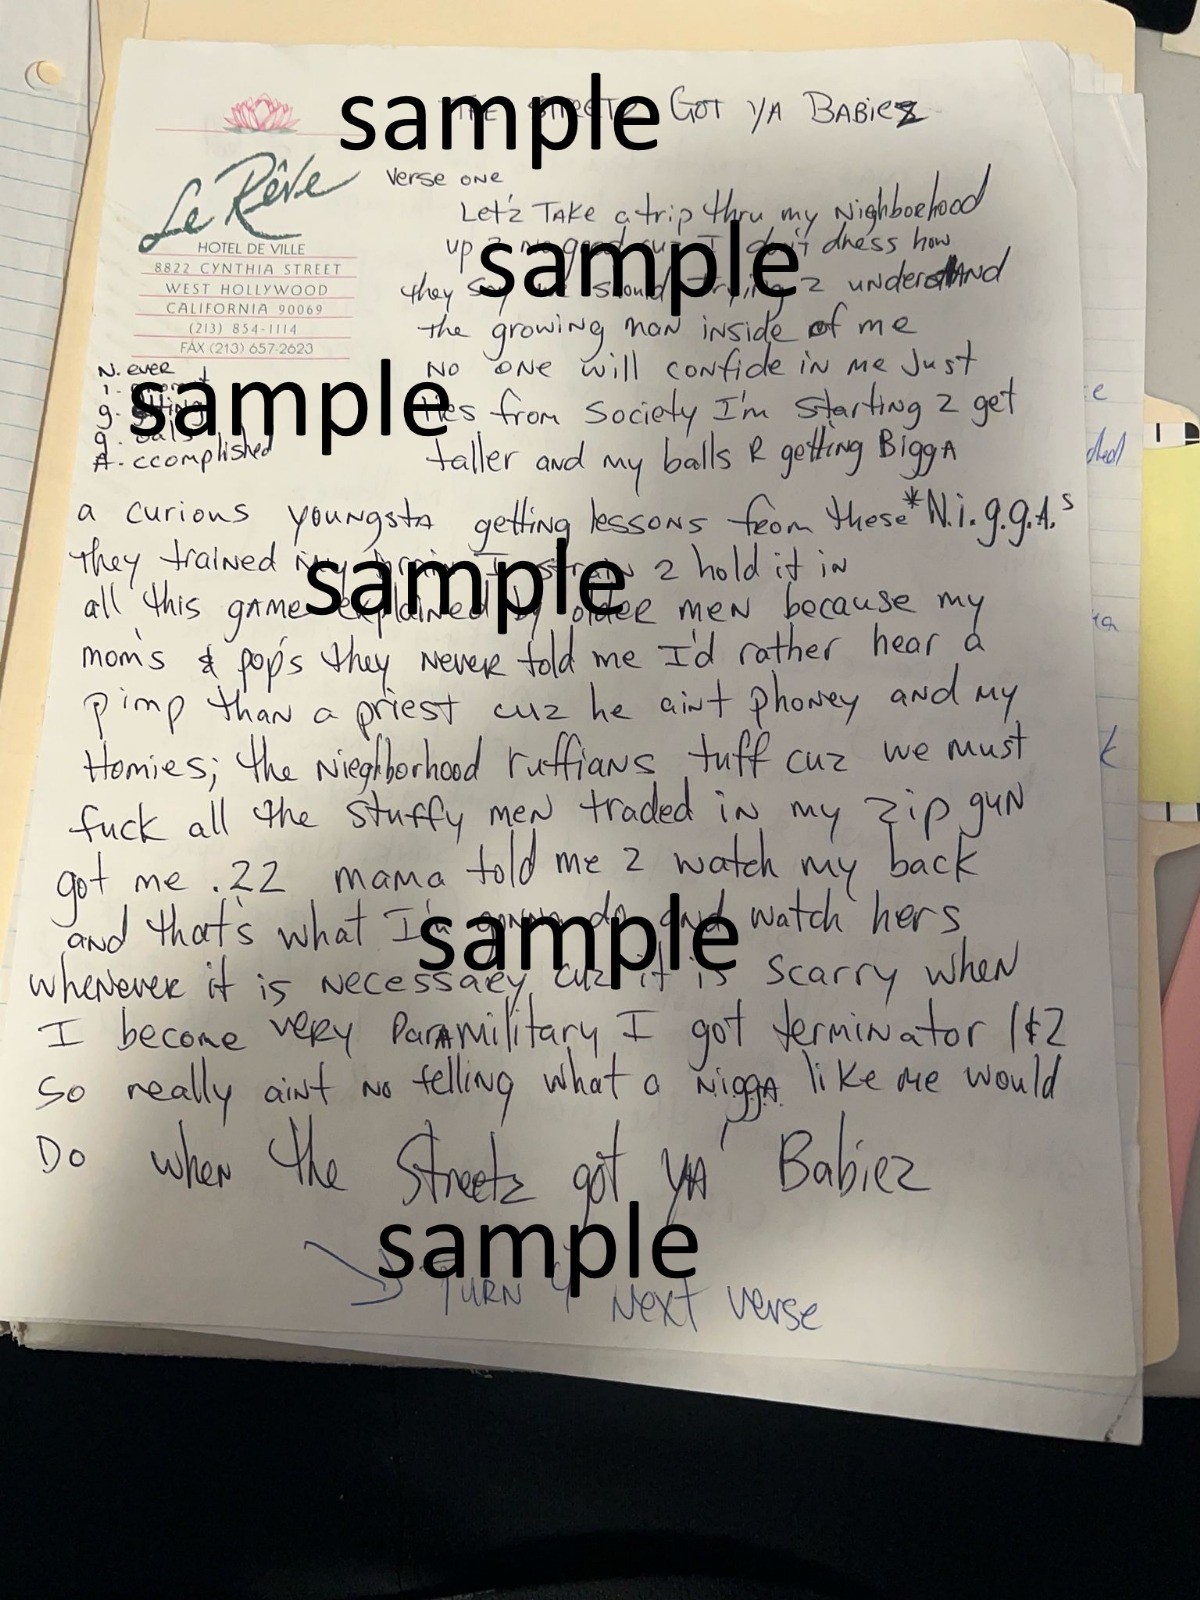 sample
THE STREETZ GOT YA BABIEZ
Le Rêve
HOTEL DE VILLE
8822 CYNTHIA STREET
WEST HOLLYWOOD
CALIFORNIA 90069
(213) 854-1114
FAX (213) 657-2623
Verse one
Let'z TAKE a trip thru my Nighborhood
up 2 no good cuz I don't dress how
sample
they say we should trying 2 understand
the growing man inside of me
No one will confide in me Just
lies from Society I'm starting 2 get
taller and my balls R getting BiggA
N. ever
i.
g.
g. oals
A. ccomplished
sample
a curious youngsta getting lessons from these *N.i.g.g.A.s
they trained my brain I strain 2 hold it in
sample
all this game explained by older men because my
mom's & pop's they never told me I'd rather hear a
pimp than a priest cuz he aint phoney and my
Homies; the Nieghborhood ruffians tuff cuz we must
fuck all the stuffy men traded in my zip gun
got me .22 mama told me 2 watch my back
and that's what I'm gonna do and watch hers
sample
whenever it is necessary cuz it is scarry when
I become very Paramilitary I got terminator 1&2
So really aint no telling what a NiggA like me would
Do when the Streetz got YA' Babiez
sample
TURN 4 Next verse